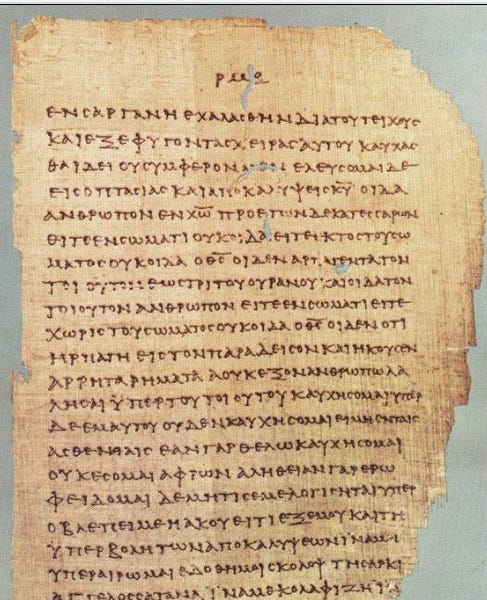 ρμε
ενϲαργανηεχαλαϲθηνδιατουτειχουϲ
καιεξεφυγονταϲχειραϲαυτουκαυχαϲ
θαιδειουϲυμφερον ελευϲομαιδε
ειϲοπταϲιαϲκαιαποκαλυψειϲκ̅υ̅ οιδα
ανθρωπονενχ̅ω̅ προετωνδεκατεϲϲαρων
ειτεενϲωματιουκοιδαειτεεκτοϲτουϲω
ματοϲουκοιδα οθ̅ϲ̅ οιδεναρπαγεντατον
τοιουτονεωϲτριτουουρανουκαιοιδατον
τοιουτονανθρωπονειτεενϲωματιειτε
χωριϲτουϲωματοϲουκοιδαοθ̅ϲ̅οιδενοτι
ηρπαγηειϲτονπαραδειϲονκαιηκουϲεν
αρρηταρηματα αουκεξονανθρωπωλα
ληϲαιϋπερτουτοιουτουκαυχηϲομαιϋπερ
δεεμαυτουουδενκαυχηϲομαιειμηενταιϲ
αϲθενειαιϲεανγαρθελωκαυχηϲομαι
ουκεϲομαιαφρωναληθειανγαρερω
φειδομαιδεμητιϲεμελογιϲηταιϋπερ
οβλεπειμεηακουειτιεξεμουκαιτη
ϋπερβολητωναποκαλυψεωνϊναμη
υπεραιρωμαιεδοθημοιϲκολοψτηϲαρκι
αγγελοϲϲαταναϊναμεκολαφιζη